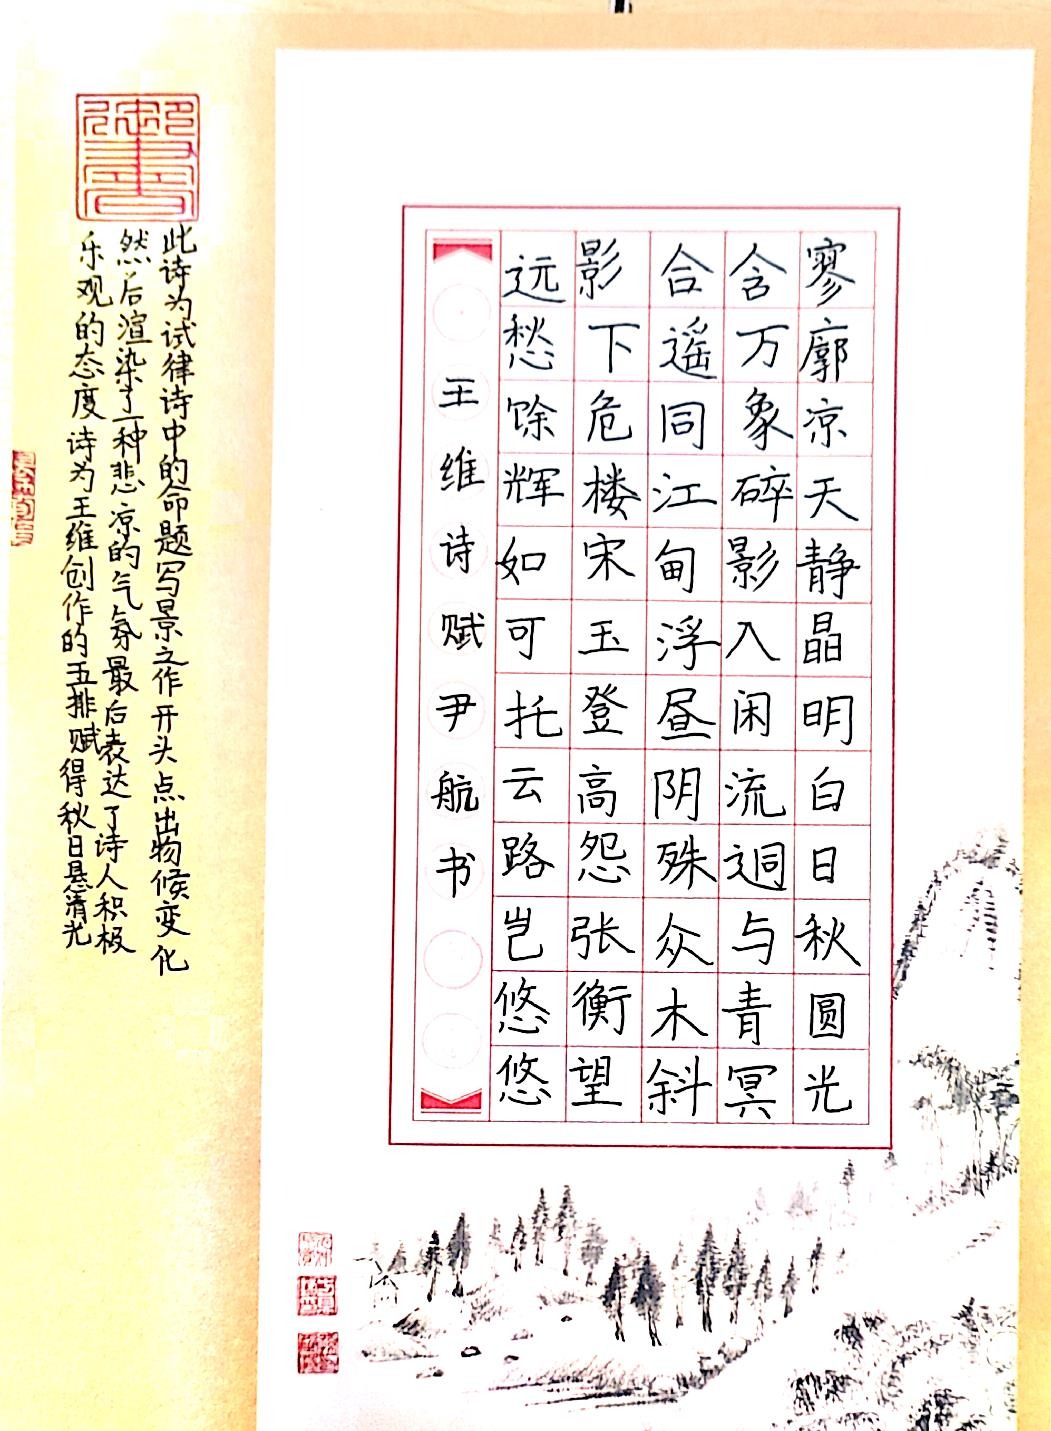 寥廓凉天静晶明白日秋圆光
含万象碎影入闲流迥与青冥
合遥同江甸浮昼阴殊众木斜
影下危楼宋玉登高怨张衡望
远愁馀辉如可托云路岂悠悠
王维诗赋尹航书
此诗为试律诗中的命题写景之作开头点出物候变化
然后渲染了一种悲凉的气氛最后表达了诗人积极
乐观的态度诗为王维创作的五排赋得秋日悬清光